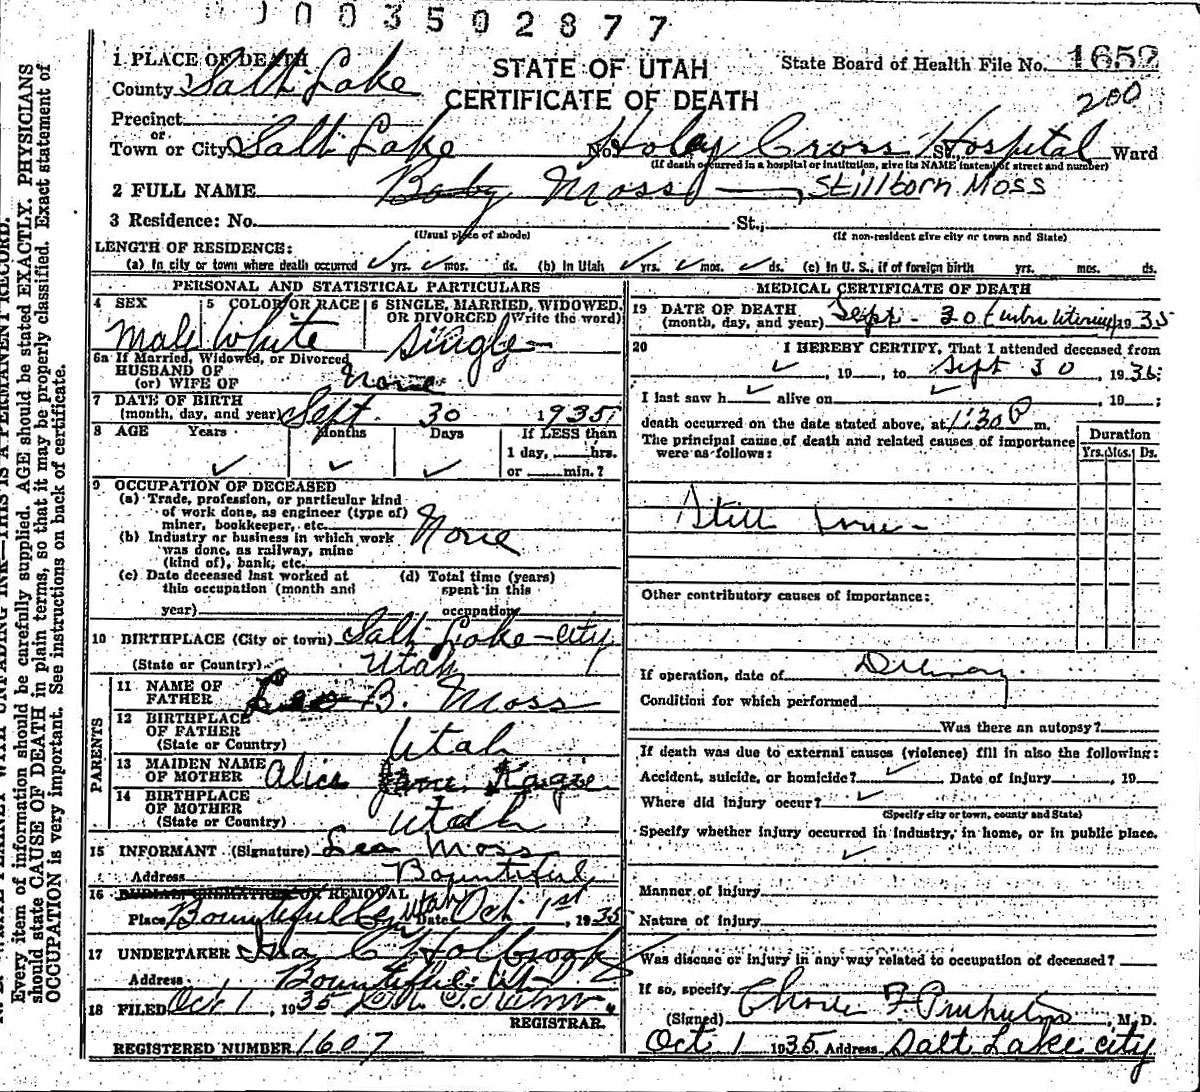 1003502877
1 PLACE OF DEATH
STATE OF UTAH
State Board of Health File No. 1652
County Salt Lake
CERTIFICATE OF DEATH
200
Precinct
or
Town or City Salt Lake No. Holey Cross Hospital St., Ward
(If death occurred in a hospital or institution, give its NAME instead of street and number)
2 FULL NAME Baby Moss, Stillborn Moss
3 Residence: No. St.,
(Usual place of abode) (If non-resident give city or town and State)
LENGTH OF RESIDENCE:
(a) In city or town where death occurred ✓ yrs. ✓ mos. ds. (b) In Utah ✓ yrs. ✓ mos. ✓ ds. (c) In U. S., if of foreign birth yrs. mos. ds.
PERSONAL AND STATISTICAL PARTICULARS
4 SEX 5 COLOR OR RACE 6 SINGLE, MARRIED, WIDOWED,
OR DIVORCED (Write the word)
Male White Single
6a If Married, Widowed, or Divorced
HUSBAND OF
(or) WIFE OF None
7 DATE OF BIRTH
(month, day, and year) Sept. 30 1935
8 AGE Years Months Days If LESS than
1 day, hrs.
✓ ✓ ✓ or min.?
9 OCCUPATION OF DECEASED
(a) Trade, profession, or particular kind
of work done, as engineer (type of)
miner, bookkeeper, etc. None
(b) Industry or business in which work
was done, as railway, mine
(kind of), bank, etc.
(c) Date deceased last worked at (d) Total time (years)
this occupation (month and spent in this
year) occupation
10 BIRTHPLACE (City or town) Salt Lake City
(State or Country) Utah
PARENTS
11 NAME OF
FATHER Leo B. Moss
12 BIRTHPLACE
OF FATHER
(State or Country) Utah
13 MAIDEN NAME
OF MOTHER Alice
14 BIRTHPLACE
OF MOTHER
(State or Country) Utah
15 INFORMANT (Signature) Leo Moss
Address Bountiful
16 BURIAL, CREMATION OR REMOVAL Utah
Place Bountiful Date Oct. 1st, 1935
17 UNDERTAKER Ira C Holbrook
Address Bountiful, Ut
18 FILED Oct 1, 1935
REGISTRAR.
REGISTERED NUMBER 1607
MEDICAL CERTIFICATE OF DEATH
19 DATE OF DEATH
(month, day, and year) Sept. 30 (intra uterine) 1935
20 I HEREBY CERTIFY, That I attended deceased from
✓, 19 , to Sept 30, 1935;
I last saw h ✓ alive on ✓, 19 ;
death occurred on the date stated above, at 1:30 P m.
The principal cause of death and related causes of importance
were as follows:
Duration
Yrs. Mos. Ds.
Still born
Other contributory causes of importance:
If operation, date of
Condition for which performed
Was there an autopsy?
If death was due to external causes (violence) fill in also the following:
Accident, suicide, or homicide? ✓ Date of injury , 19
Where did injury occur? ✓
(Specify city or town, county and State)
Specify whether injury occurred in industry, in home, or in public place.
✓
Manner of injury
Nature of injury
Was disease or injury in any way related to occupation of deceased?
If so, specify
(Signed) , M. D.
Oct 1 1935 Address Salt Lake City
Every item of information should be carefully supplied. AGE should be stated EXACTLY. PHYSICIANS
should state CAUSE OF DEATH in plain terms, so that it may be properly classified. Exact statement of
OCCUPATION is very important. See instructions on back of certificate.